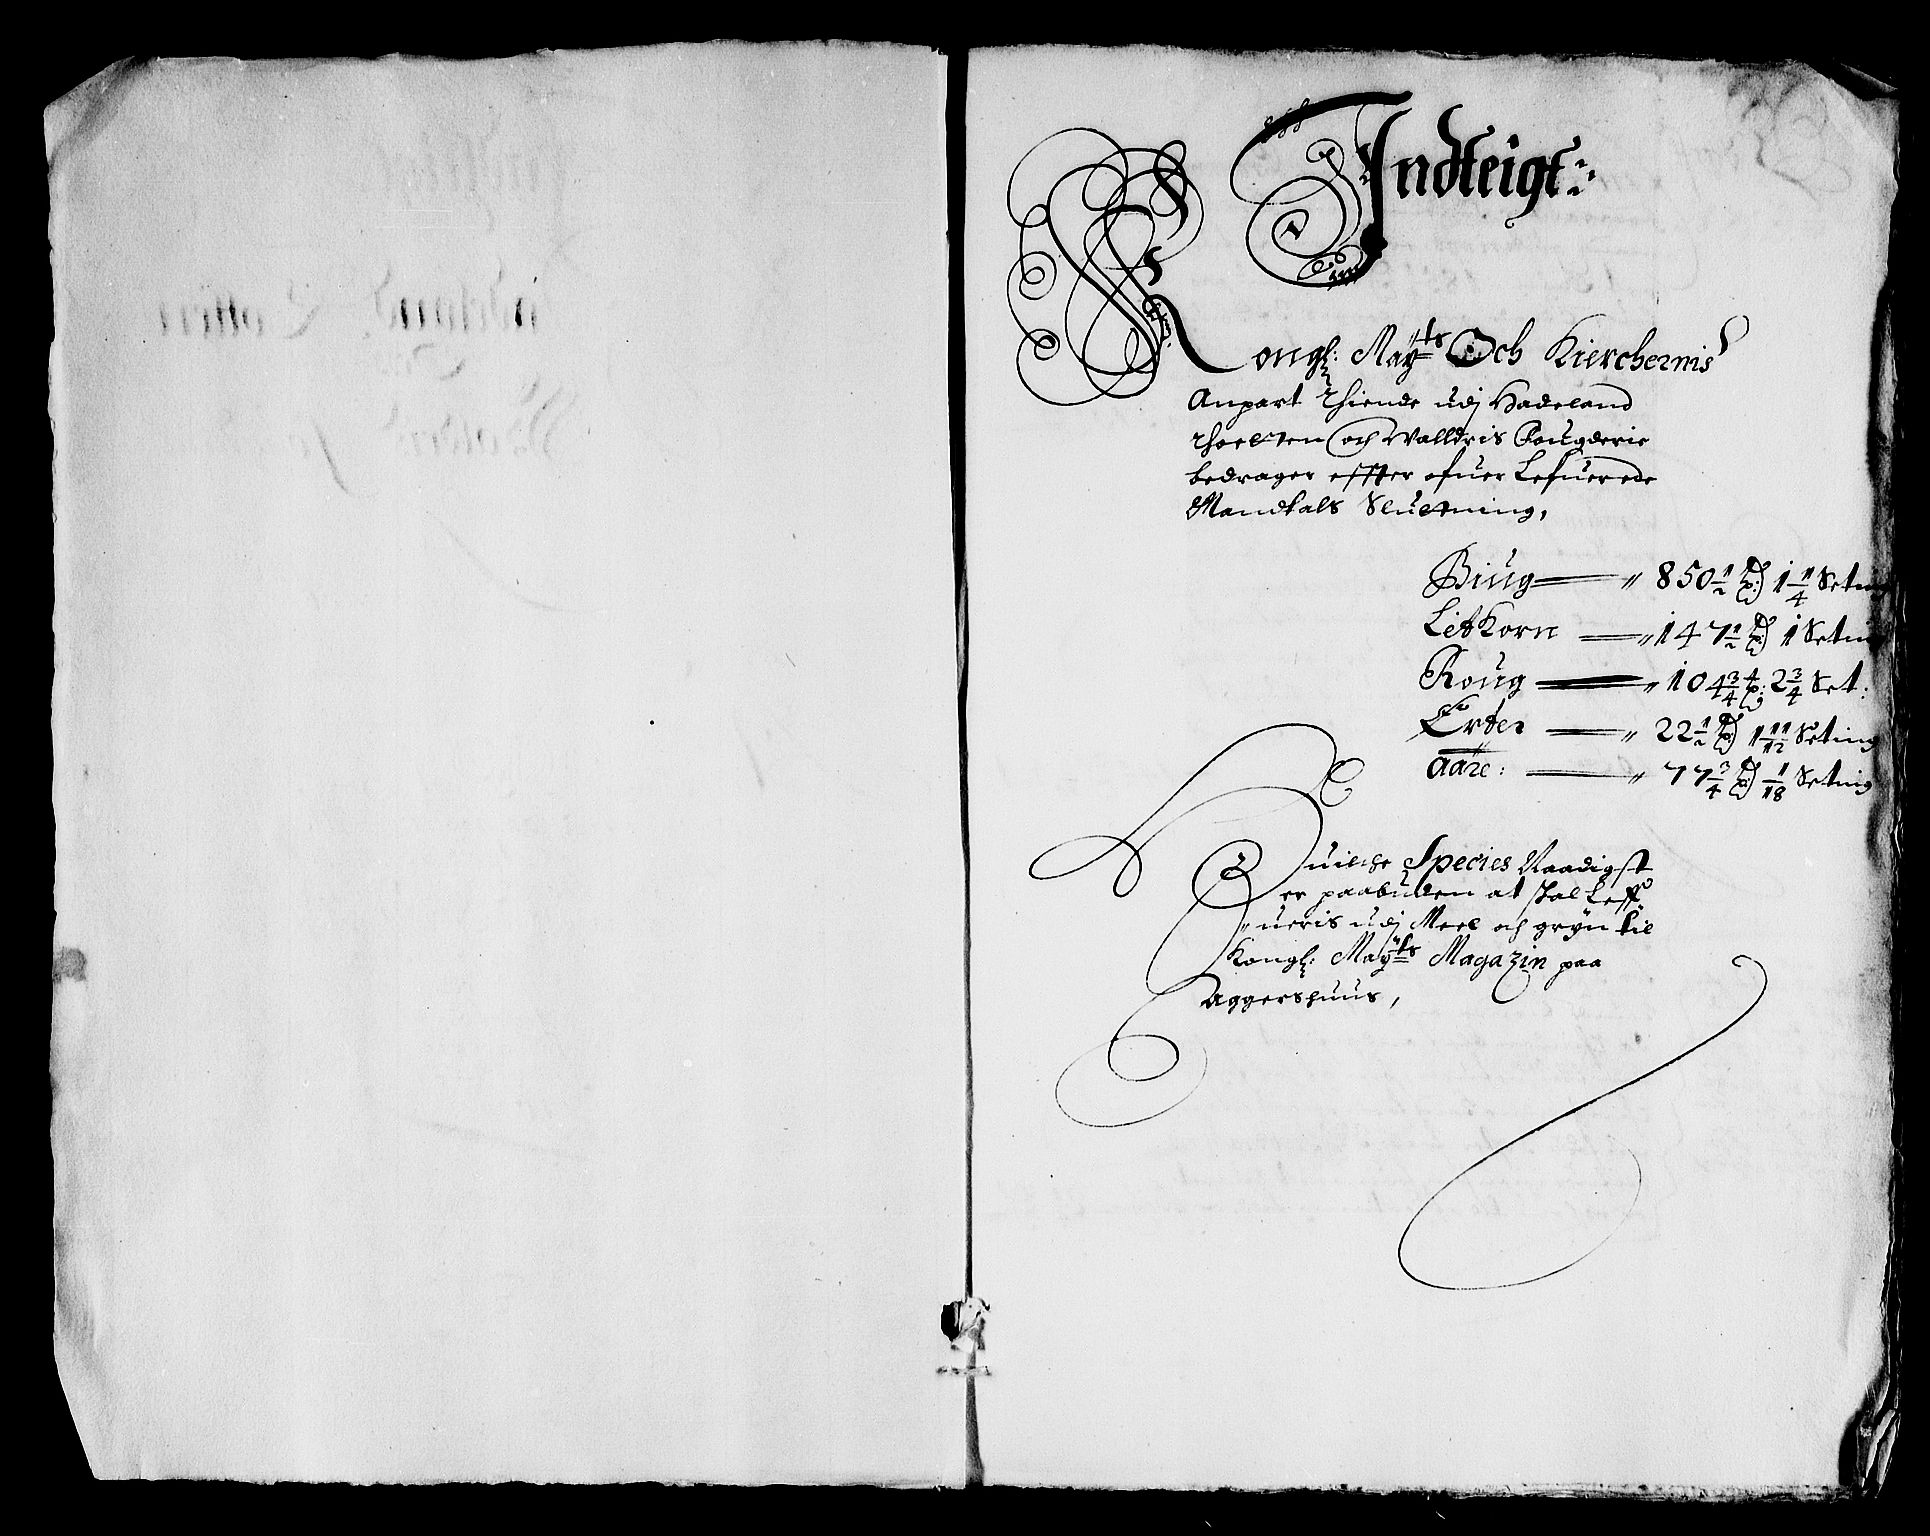 Indteigt:
Kongl: May:ts Och Kierchernis
Anpart Thiende udj Hadeland
Thoelten och Valldris Fougderie
bedrager effter ofuer Lefuerede
Mandtals Sluttning,
Biug — " 850½ td 1¼ Seting
Letkorn — " 147½ td 1 Seting
Roug — " 104¾ t: 2¾ Set:
Erter — " 22½ td 1 11/12 Seting
aare: — " 77¾ td 1/18 Seting
Huilche Species Naadigst
er paabuden at skal Leff
" ueris udj Meel och gryn til
Kongl: May:ts Magazin paa
Aggershuus,